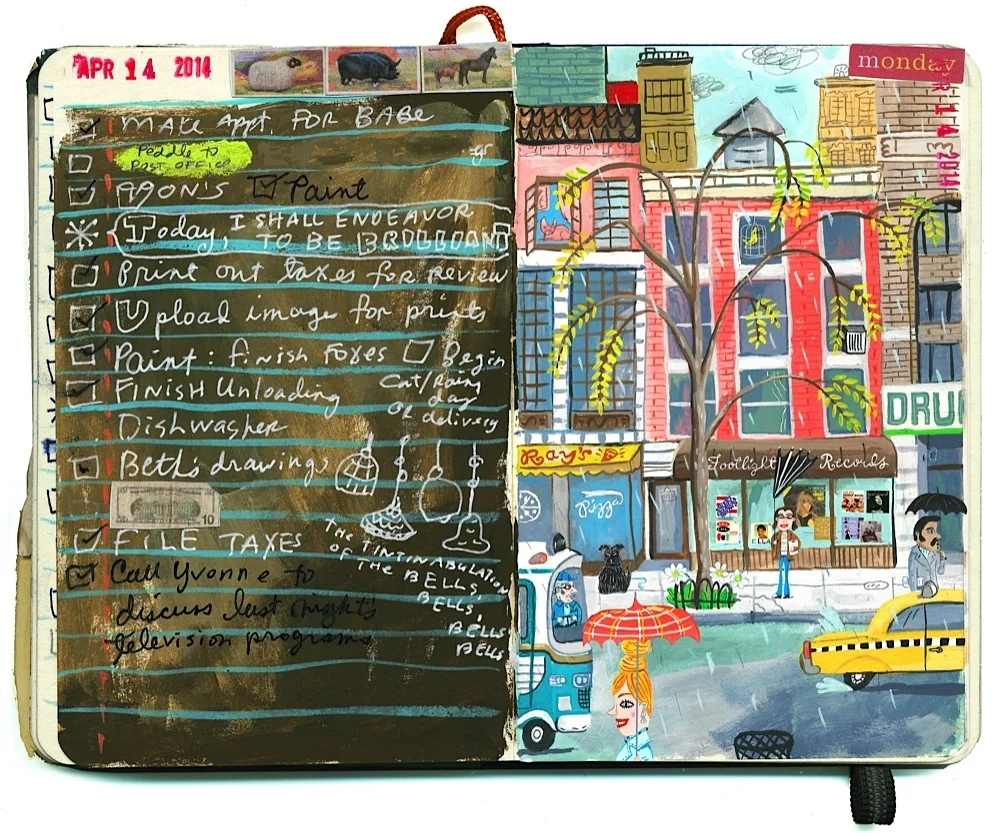 APR 14 2014
MAKE Appt. FOR BABE
Peddle to
POST OFFICE
AGON'S Paint
Today, I SHALL ENDEAVOR
TO BE BRILLIANT
Print out taxes for review
Upload image for prints
Paint: finish Foxes Begin
Cat/Rainy
day
OR delivery
FINISH Unloading
Dishwasher
Beth's drawings
10
THE TINTINABULATION
OF THE BELLS,
BELLS,
BELLS
BELLS
FILE TAXES
Call Yvonne to
discuss last night's
television programs
monday
14 2014
Ray's
Pizza
Footlight Records
ELLA
DRU